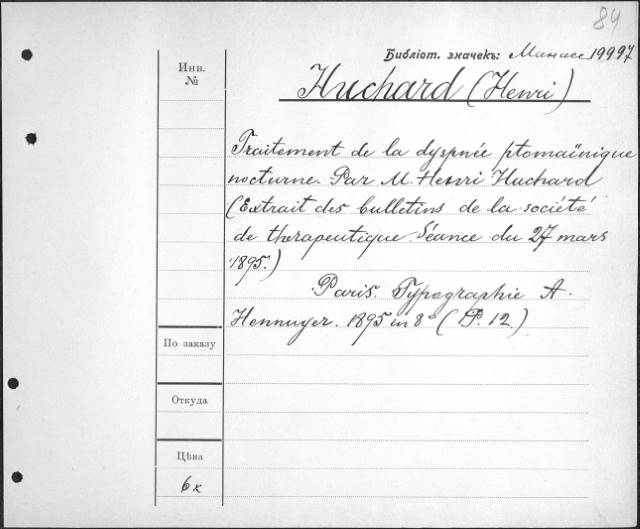 84
Библіот. значекъ: Минасс 19997
Инв.
№
Huchard (Henri)
Traitement de la dyspnée ptomaïnique
nocturne. Par M. Henri Huchard
(Extrait des bulletins de la société
de therapeutique. Séance du 27 mars
1895.)
Paris. Typographie A.
Hennuyer. 1895 in 8° (P. 12.)
По заказу
Откуда
Цѣна
6 к